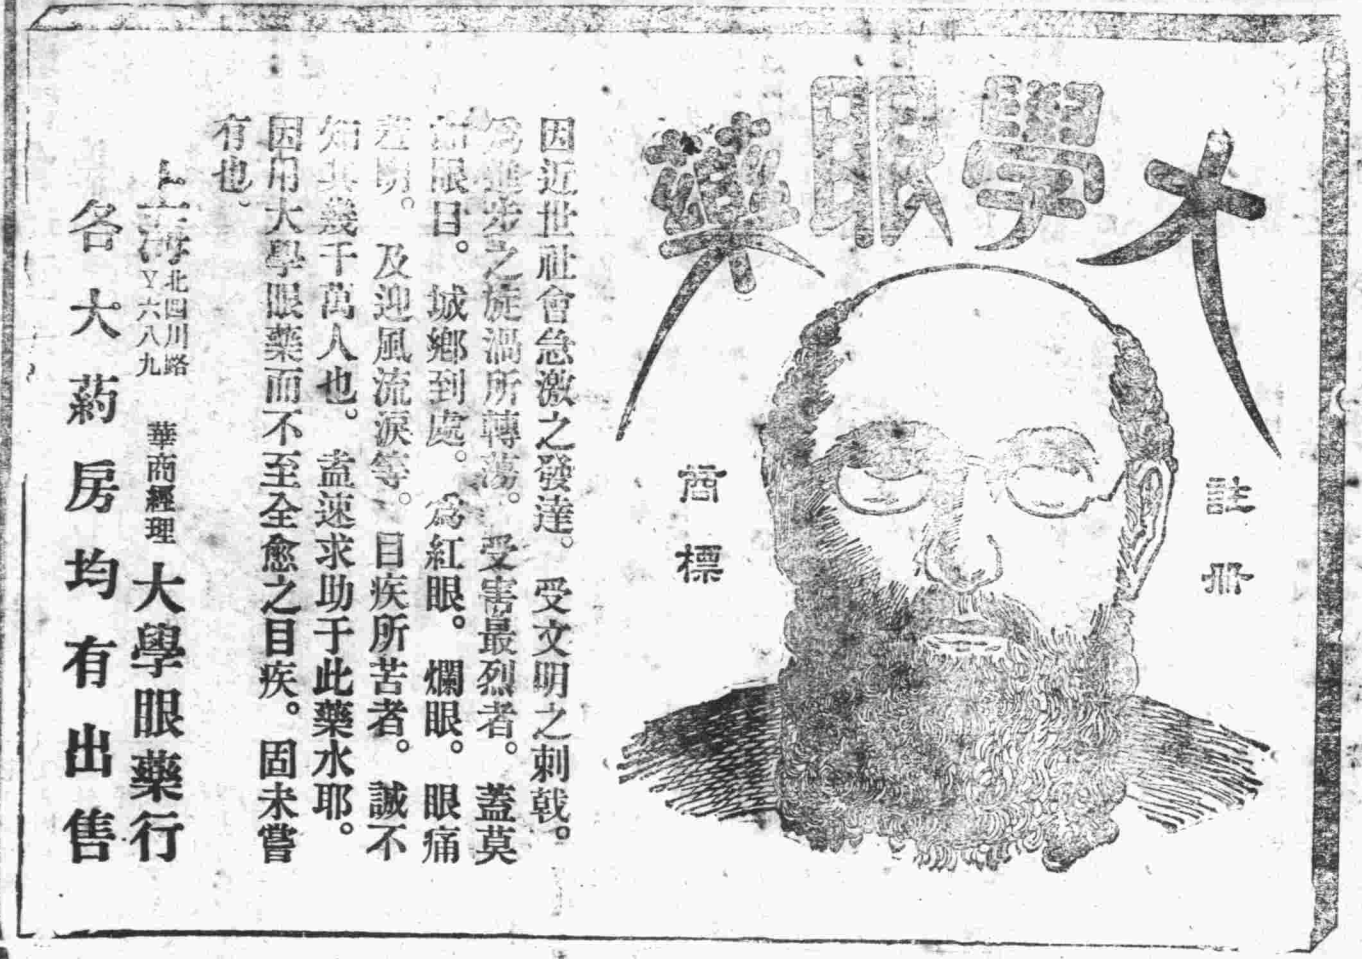 大學眼藥
註冊
商標
因近世社會急激之發達。受文明之刺戟。
為進步之旋渦所轉蕩。受害最烈者。蓋莫
如眼目。城鄉到處。為紅眼。爛眼。眼痛
羞明。及迎風流淚等。目疾所苦者。誠不
知其幾千萬人也。盍速求助于此藥水耶。
因用大學眼藥而不至全愈之目疾。固未嘗
有也。
上海
北四川路
Y六八九
華商經理
大學眼藥行
各大葯房均有出售